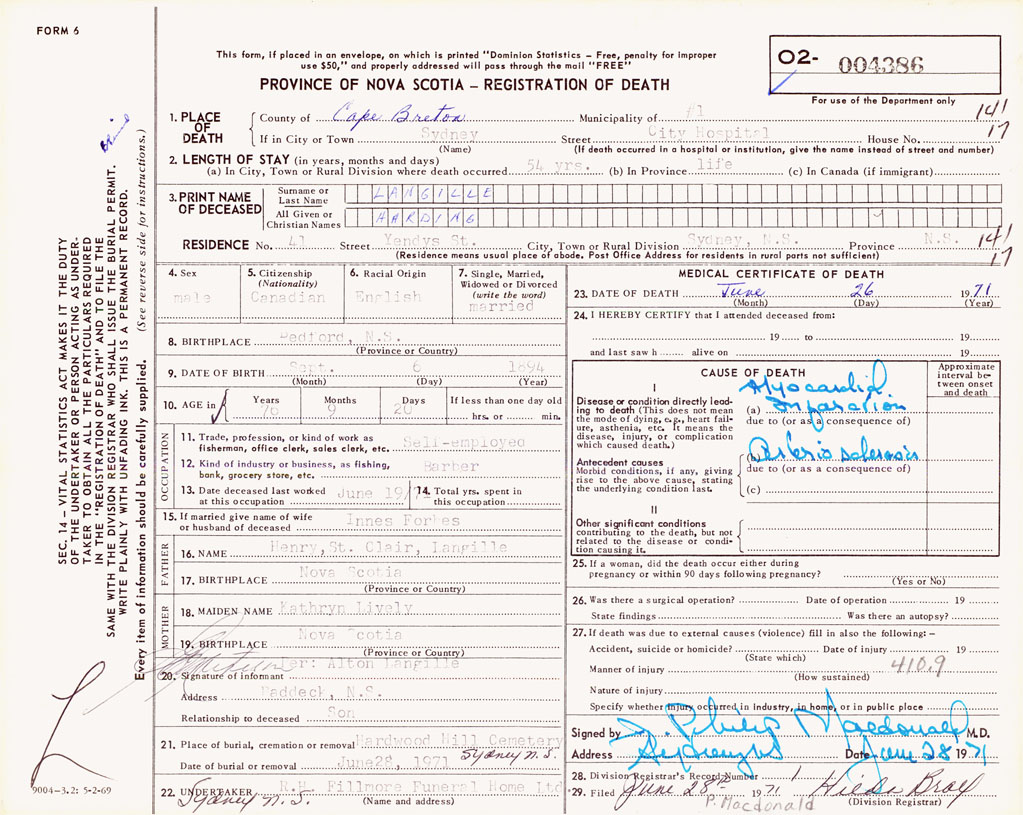 FORM 6
This form, if placed in an envelope, on which is printed "Dominion Statistics – Free, penalty for improper
use $50," and properly addressed will pass through the mail "FREE"
PROVINCE OF NOVA SCOTIA – REGISTRATION OF DEATH
O2- 004386
For use of the Department only
1. PLACE OF DEATH
County of Cape Breton Municipality of #1 141
If in City or Town Sydney Street City Hospital House No. 17
(Name) (If death occurred in a hospital or institution, give the name instead of street and number)
2. LENGTH OF STAY (in years, months and days)
(a) In City, Town or Rural Division where death occurred 54 yrs. (b) In Province life (c) In Canada (if immigrant)
3. PRINT NAME OF DECEASED
Surname or Last Name LANGILLE
All Given or Christian Names HARDING
RESIDENCE No. 41 Street Xendys St. City, Town or Rural Division Sydney, N.S. Province N.S. 141
(Residence means usual place of abode. Post Office Address for residents in rural parts not sufficient) 17
4. Sex
male
5. Citizenship (Nationality)
Canadian
6. Racial Origin
English
7. Single, Married, Widowed or Divorced (write the word)
married
8. BIRTHPLACE Bedford, N.S.
(Province or Country)
9. DATE OF BIRTH Sept. 6 1894
(Month) (Day) (Year)
10. AGE in
Years Months Days If less than one day old
76 9 20 hrs. or min.
OCCUPATION
11. Trade, profession, or kind of work as
fisherman, office clerk, sales clerk, etc. Self-employed
12. Kind of industry or business, as fishing,
bank, grocery store, etc. Barber
13. Date deceased last worked
at this occupation June 19/71
14. Total yrs. spent in
this occupation
15. If married give name of wife
or husband of deceased Innes Forbes
FATHER
16. NAME Henry, St. Clair, Langille
17. BIRTHPLACE Nova Scotia
(Province or Country)
MOTHER
18. MAIDEN NAME Kathryn Lively
19. BIRTHPLACE Nova Scotia
(Province or Country)
20. Signature of informant per: Alton Langille
Address Baddeck, N.S.
Relationship to deceased Son
21. Place of burial, cremation or removal Hardwood Hill Cemetery
Sydney N.S.
Date of burial or removal June28, 1971
22. UNDERTAKER R.H. Fillmore Funeral Home Ltd
Sydney N.S. (Name and address)
MEDICAL CERTIFICATE OF DEATH
23. DATE OF DEATH June 26 1971
(Month) (Day) (Year)
24. I HEREBY CERTIFY that I attended deceased from:
19 to 19
and last saw h alive on 19
CAUSE OF DEATH
Approximate interval between onset and death
I
Disease or condition directly lead-
ing to death (This does not mean
the mode of dying, e.g., heart fail-
ure, asthenia, etc. It means the
disease, injury, or complication
which caused death.)
(a) Myocardial Infarction
due to (or as a consequence of)
Antecedent causes
Morbid conditions, if any, giving
rise to the above cause, stating
the underlying condition last.
(b) Arteriosclerosis
due to (or as a consequence of)
(c)
II
Other significant conditions
contributing to the death, but not
related to the disease or condi-
tion causing it.
25. If a woman, did the death occur either during
pregnancy or within 90 days following pregnancy?
(Yes or No)
26. Was there a surgical operation? Date of operation 19
State findings Was there an autopsy?
27. If death was due to external causes (violence) fill in also the following: –
Accident, suicide or homicide? Date of injury 19
(State which)
Manner of injury 410.9
(How sustained)
Nature of injury
Specify whether injury occurred in industry, in home, or in public place
Signed by J. Philip Macdonald M.D.
Address Date June 28 1971
28. Division Registrar's Record Number 1
29. Filed June 28th 1971 Hilda
P. Macdonald (Division Registrar)
SEC. 14 – VITAL STATISTICS ACT MAKES IT THE DUTY
OF THE UNDERTAKER OR PERSON ACTING AS UNDER-
TAKER TO OBTAIN ALL THE PARTICULARS REQUIRED
IN THE "REGISTRATION OF DEATH" AND TO FILE THE
SAME WITH THE DIVISION REGISTRAR WHO SHALL ISSUE THE BURIAL PERMIT.
WRITE PLAINLY WITH UNFADING INK. THIS IS A PERMANENT RECORD.
Every item of information should be carefully supplied. (See reverse side for instructions.)
9004-3.2: 5-2-69